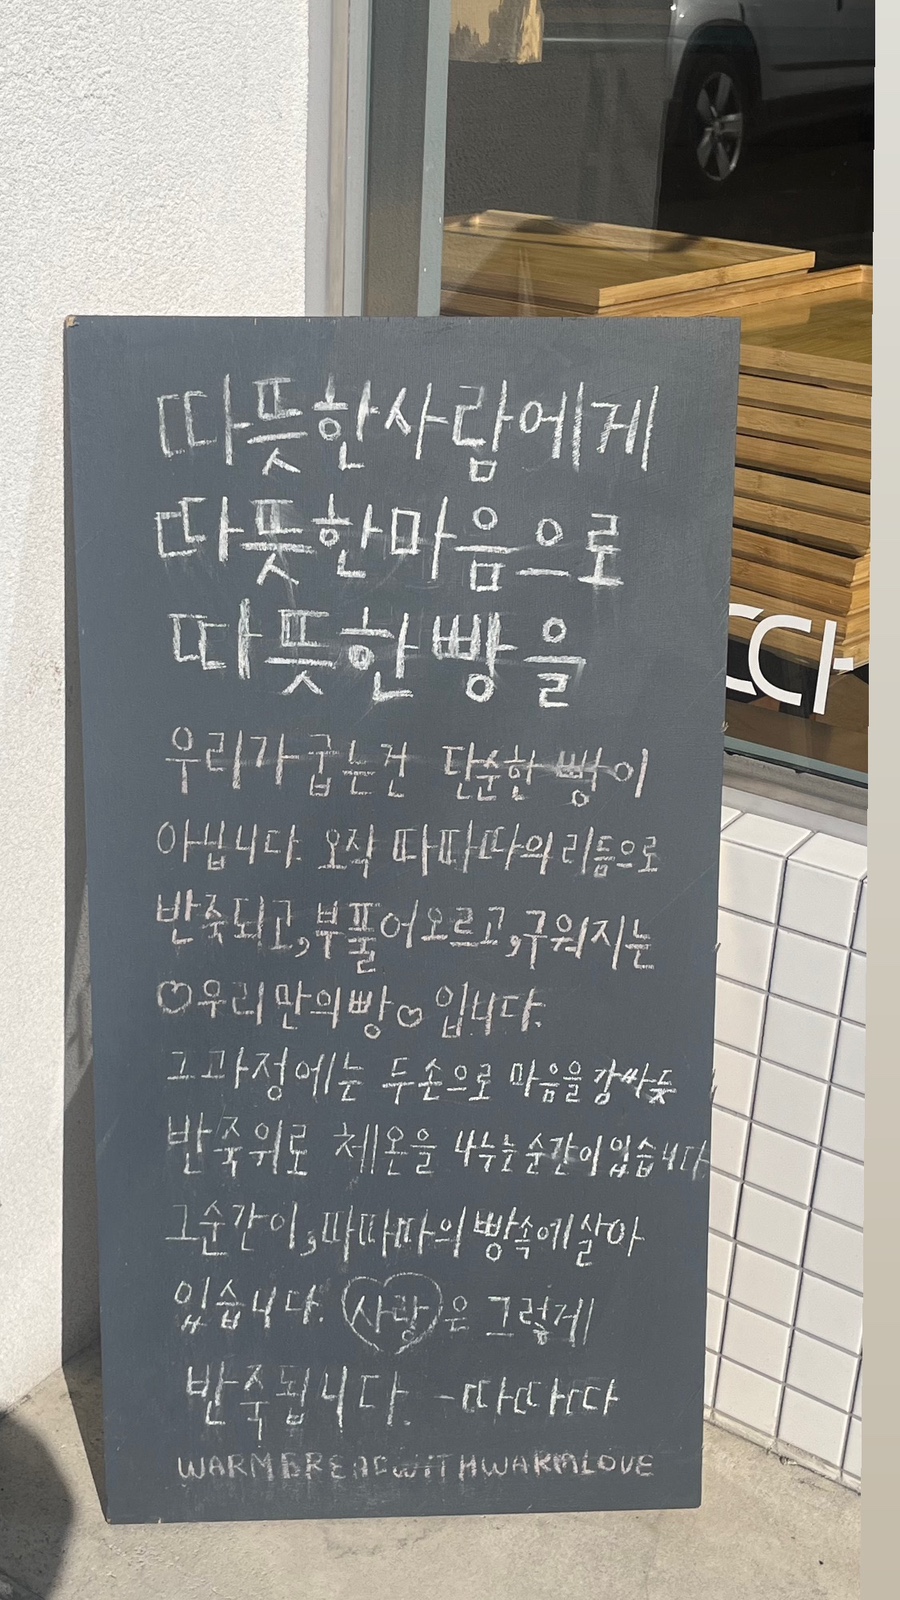 따뜻한사람에게
따뜻한마음으로
따뜻한빵을
우리가 굽는건 단순한 빵이
아닙니다. 오직 따따따의 리듬으로
반죽되고,부풀어오르고,구워지는
♡우리만의빵♡입니다.
그과정에는 두손으로 마음을 감싸듯
반죽위로 체온을 나누는 순간이 있습니다.
그순간이,따따따의 빵속에 살아
있습니다. 사랑은 그렇게
반죽됩니다. -따따따
WARMBREADWITHWARMLOVE